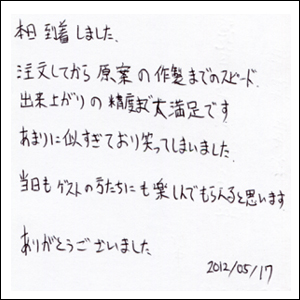 本日 到着しました。
注文してから原案の作製までのスピード、
出来上がりの精度まで大満足です
あまりに似すぎており笑ってしまいました。
当日もゲストの方たちにも楽しんでもらえると思います
ありがとうございました
2012/05/17